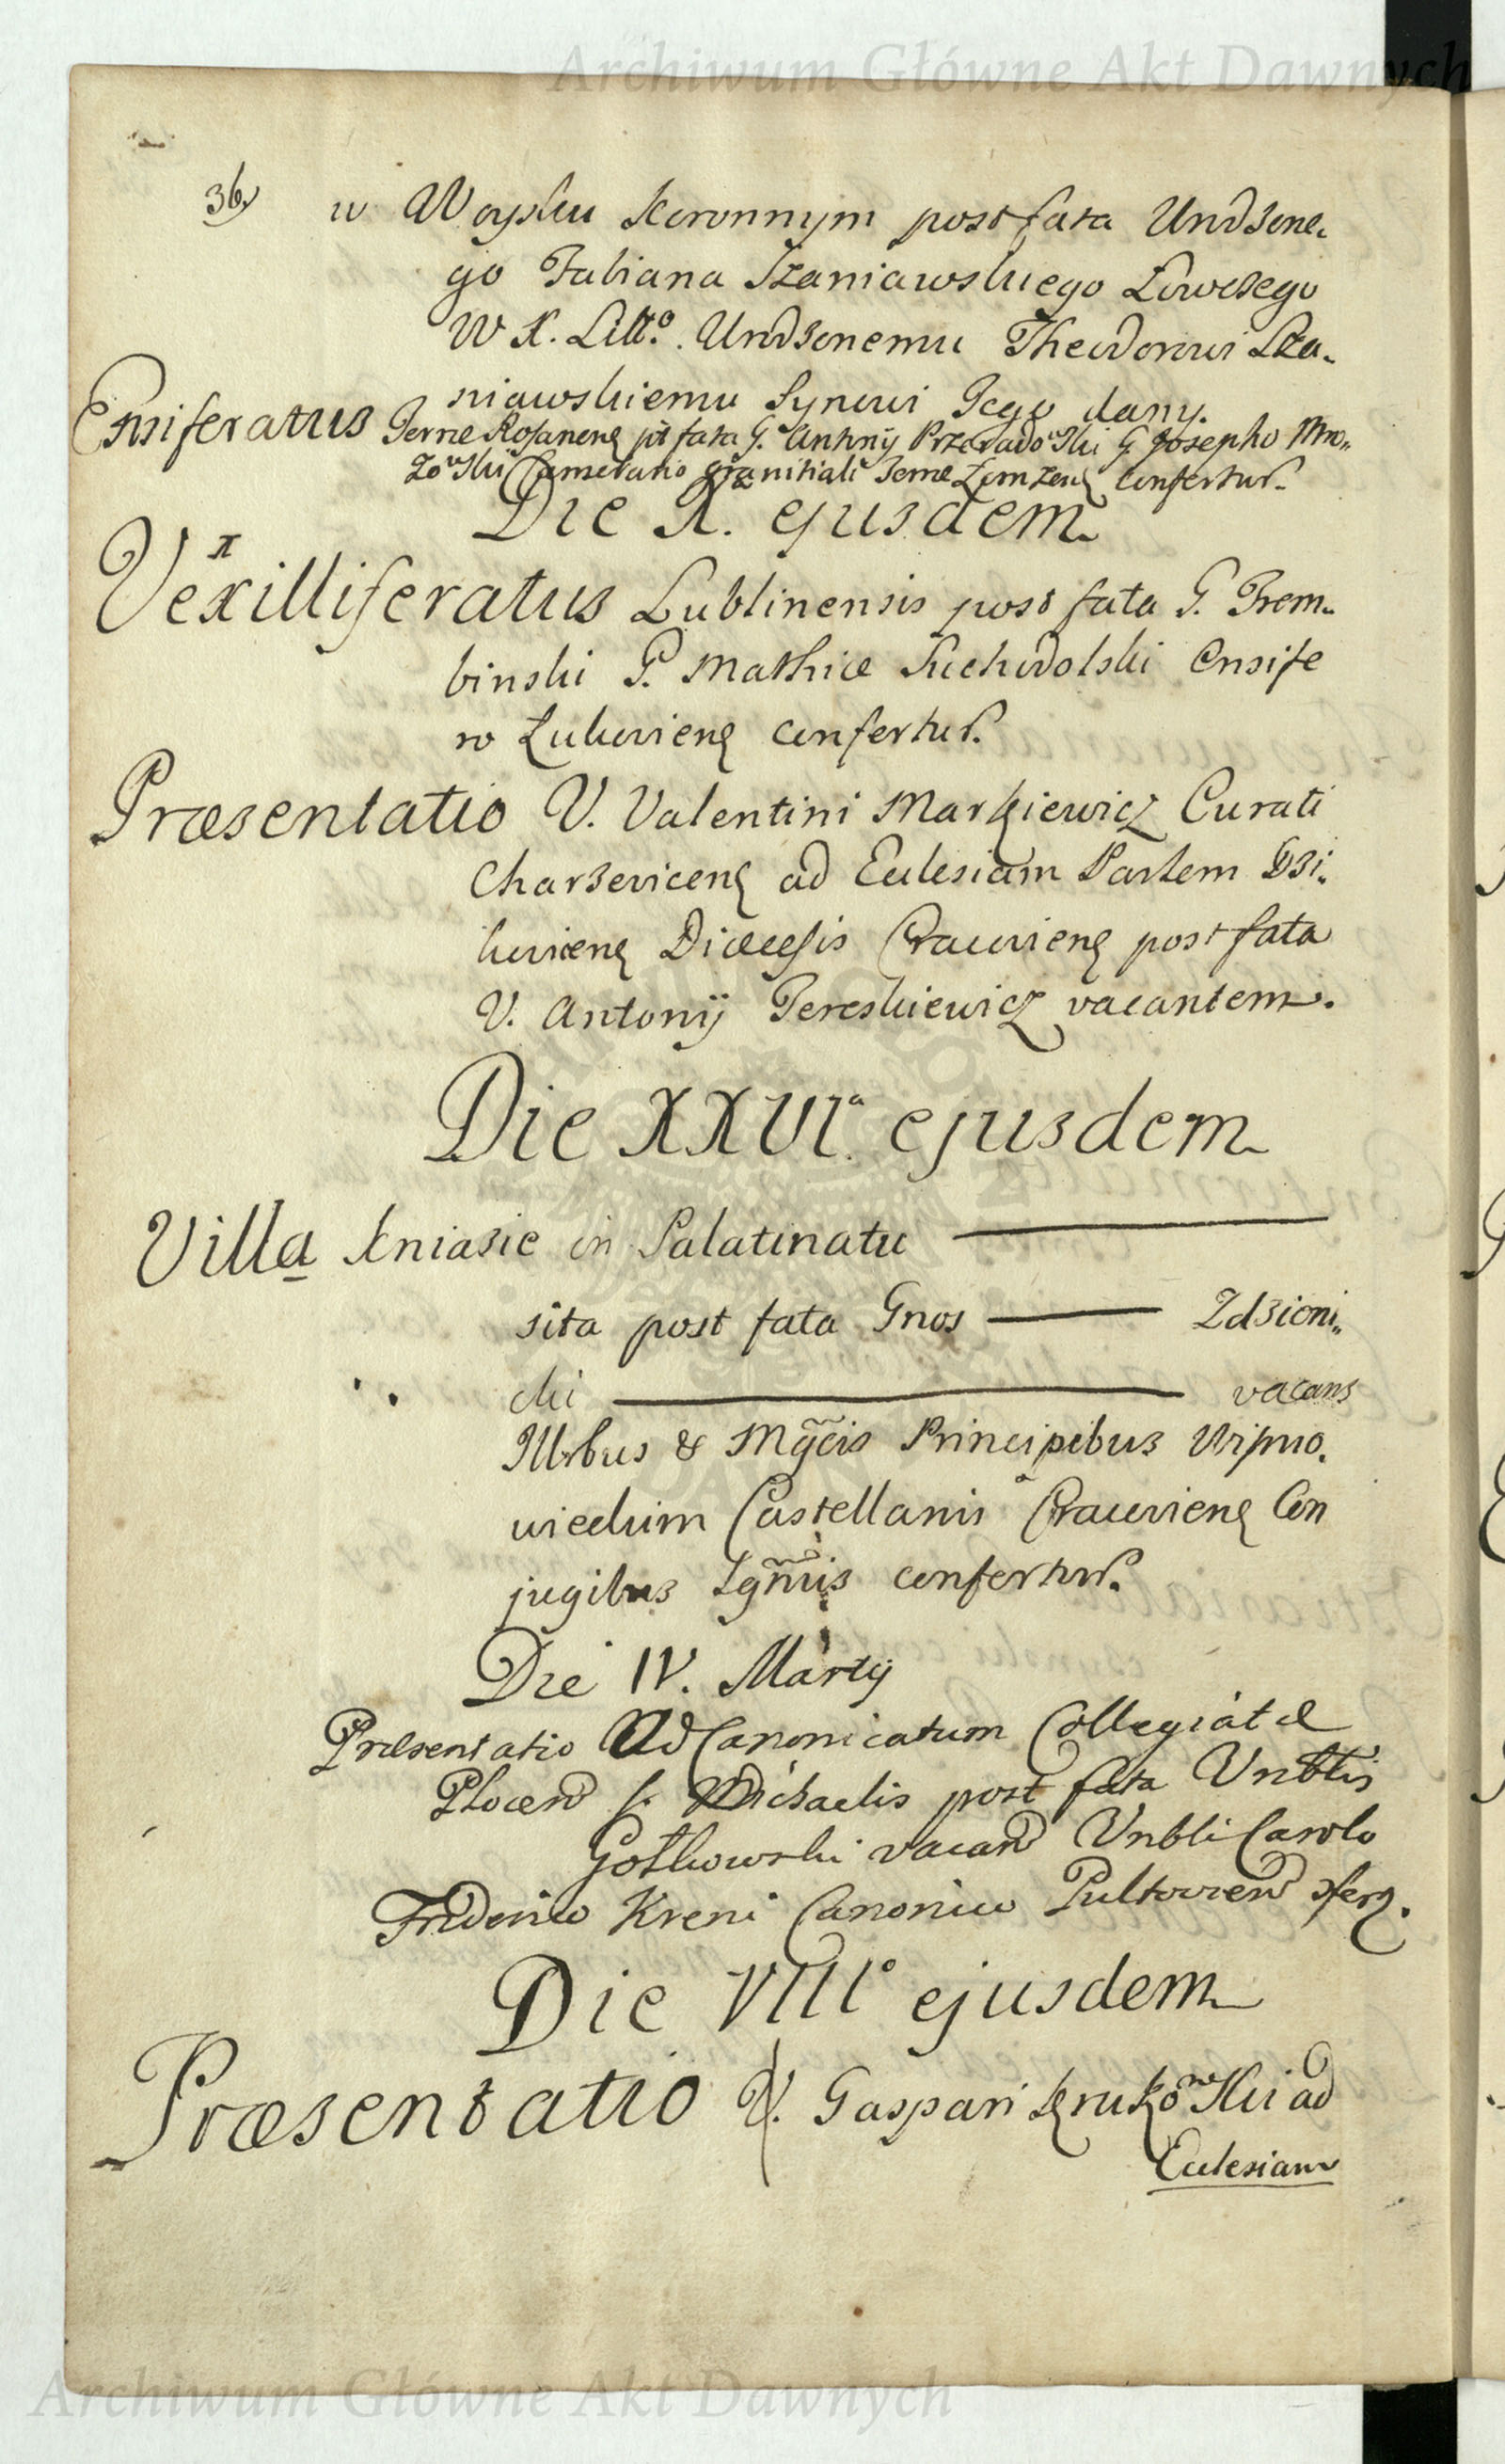 Archiwum Główne Akt Dawnych
36
w Woysku Koronnym post fata Urodzone-
go Fabiana Szaniawskiego Łowczego
W X. Litt.o Urodzonemu Theodorowi Sza-
niawskiemu Synowi Jego dany.
Ensiferatus Terræ Rosanens post fata G. Antonij Przeradowski G. Josepho Mro-
zowski Camerario granitiali Terræ Łomzens confertur.
Die X. ejusdem
Vexilliferatus Lublinensis post fata G. Trem-
binski G. Mathiæ Suchodolski Ensife
ro Lukoviens confertur.
Præsentatio V. Valentini Markiewicz Curati
Charzevicens ad Eclesiam Partem Dzi-
kovicens Diæcesis Cracoviens post fata
V. Antonij Tereskiewicz vacantem.
Die XXVIa ejusdem
Villa Kniazie in Palatinatu
sita post fata Gnos Zdzieni-
cki vacans
Illrbus & Mgcis Principibus Wisnio-
wieckim Castellanis Cracoviens Con
jugibus Lgmis confertur.
Die IV. Martij
Præsentatio Ad Canonicatum Collegiatæ
Plocen S. Michaelis post fata Vnblis
Gotkowski vacan Vnbli Carolo
Friderico Kreni Canonico Pultovien
Die VIIIo ejusdem
Præsentatio V. Gaspari Krukowski ad
Eclesiam
Archiwum Główne Akt Dawnych